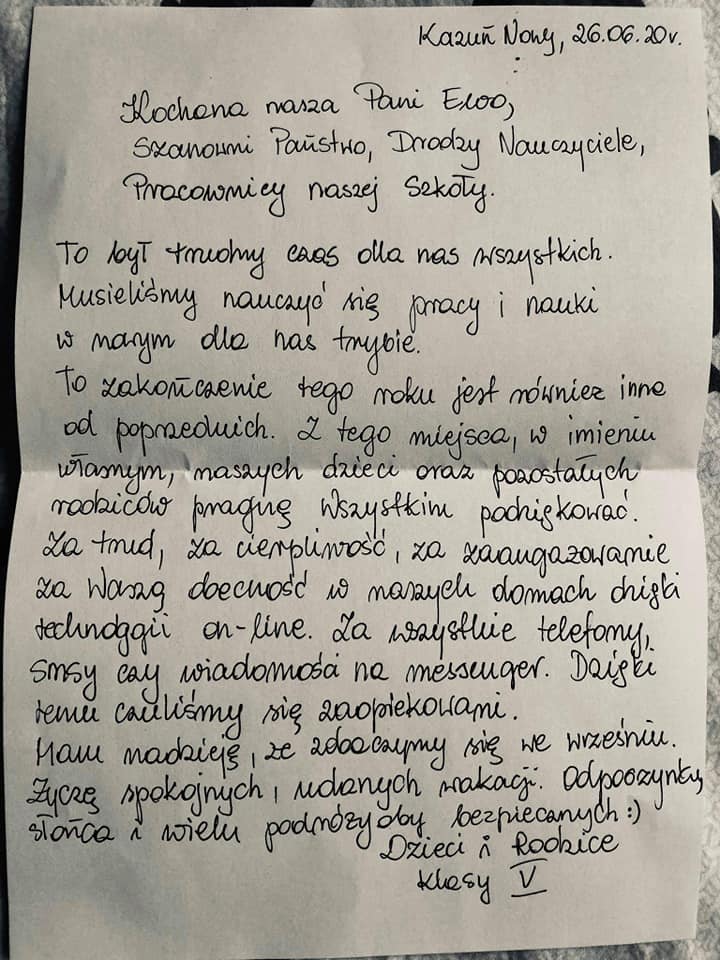 Kazuń Nowy, 26.06.20r.
Kochana nasza Pani Ewo,
Szanowni Państwo, Drodzy Nauczyciele,
Pracownicy naszej Szkoły.
To był trudny czas dla nas wszystkich.
Musieliśmy nauczyć się pracy i nauki
w nowym dla nas trybie.
To zakończenie tego roku jest również inne
od poprzednich. Z tego miejsca, w imieniu
własnym, naszych dzieci oraz pozostałych
rodziców pragnę Wszystkim podziękować.
Za trud, za cierpliwość, za zaangażowanie
za Waszą obecność w naszych domach dzięki
technologii on-line. Za wszystkie telefony,
smsy czy wiadomości na messenger. Dzięki
temu czuliśmy się zaopiekowani.
Mam nadzieję, że zobaczymy się we wrześniu.
Życzę spokojnych, udanych wakacji. Odpoczynku,
słońca i wielu podróży oby bezpiecznych :)
Dzieci i Rodzice
klasy V